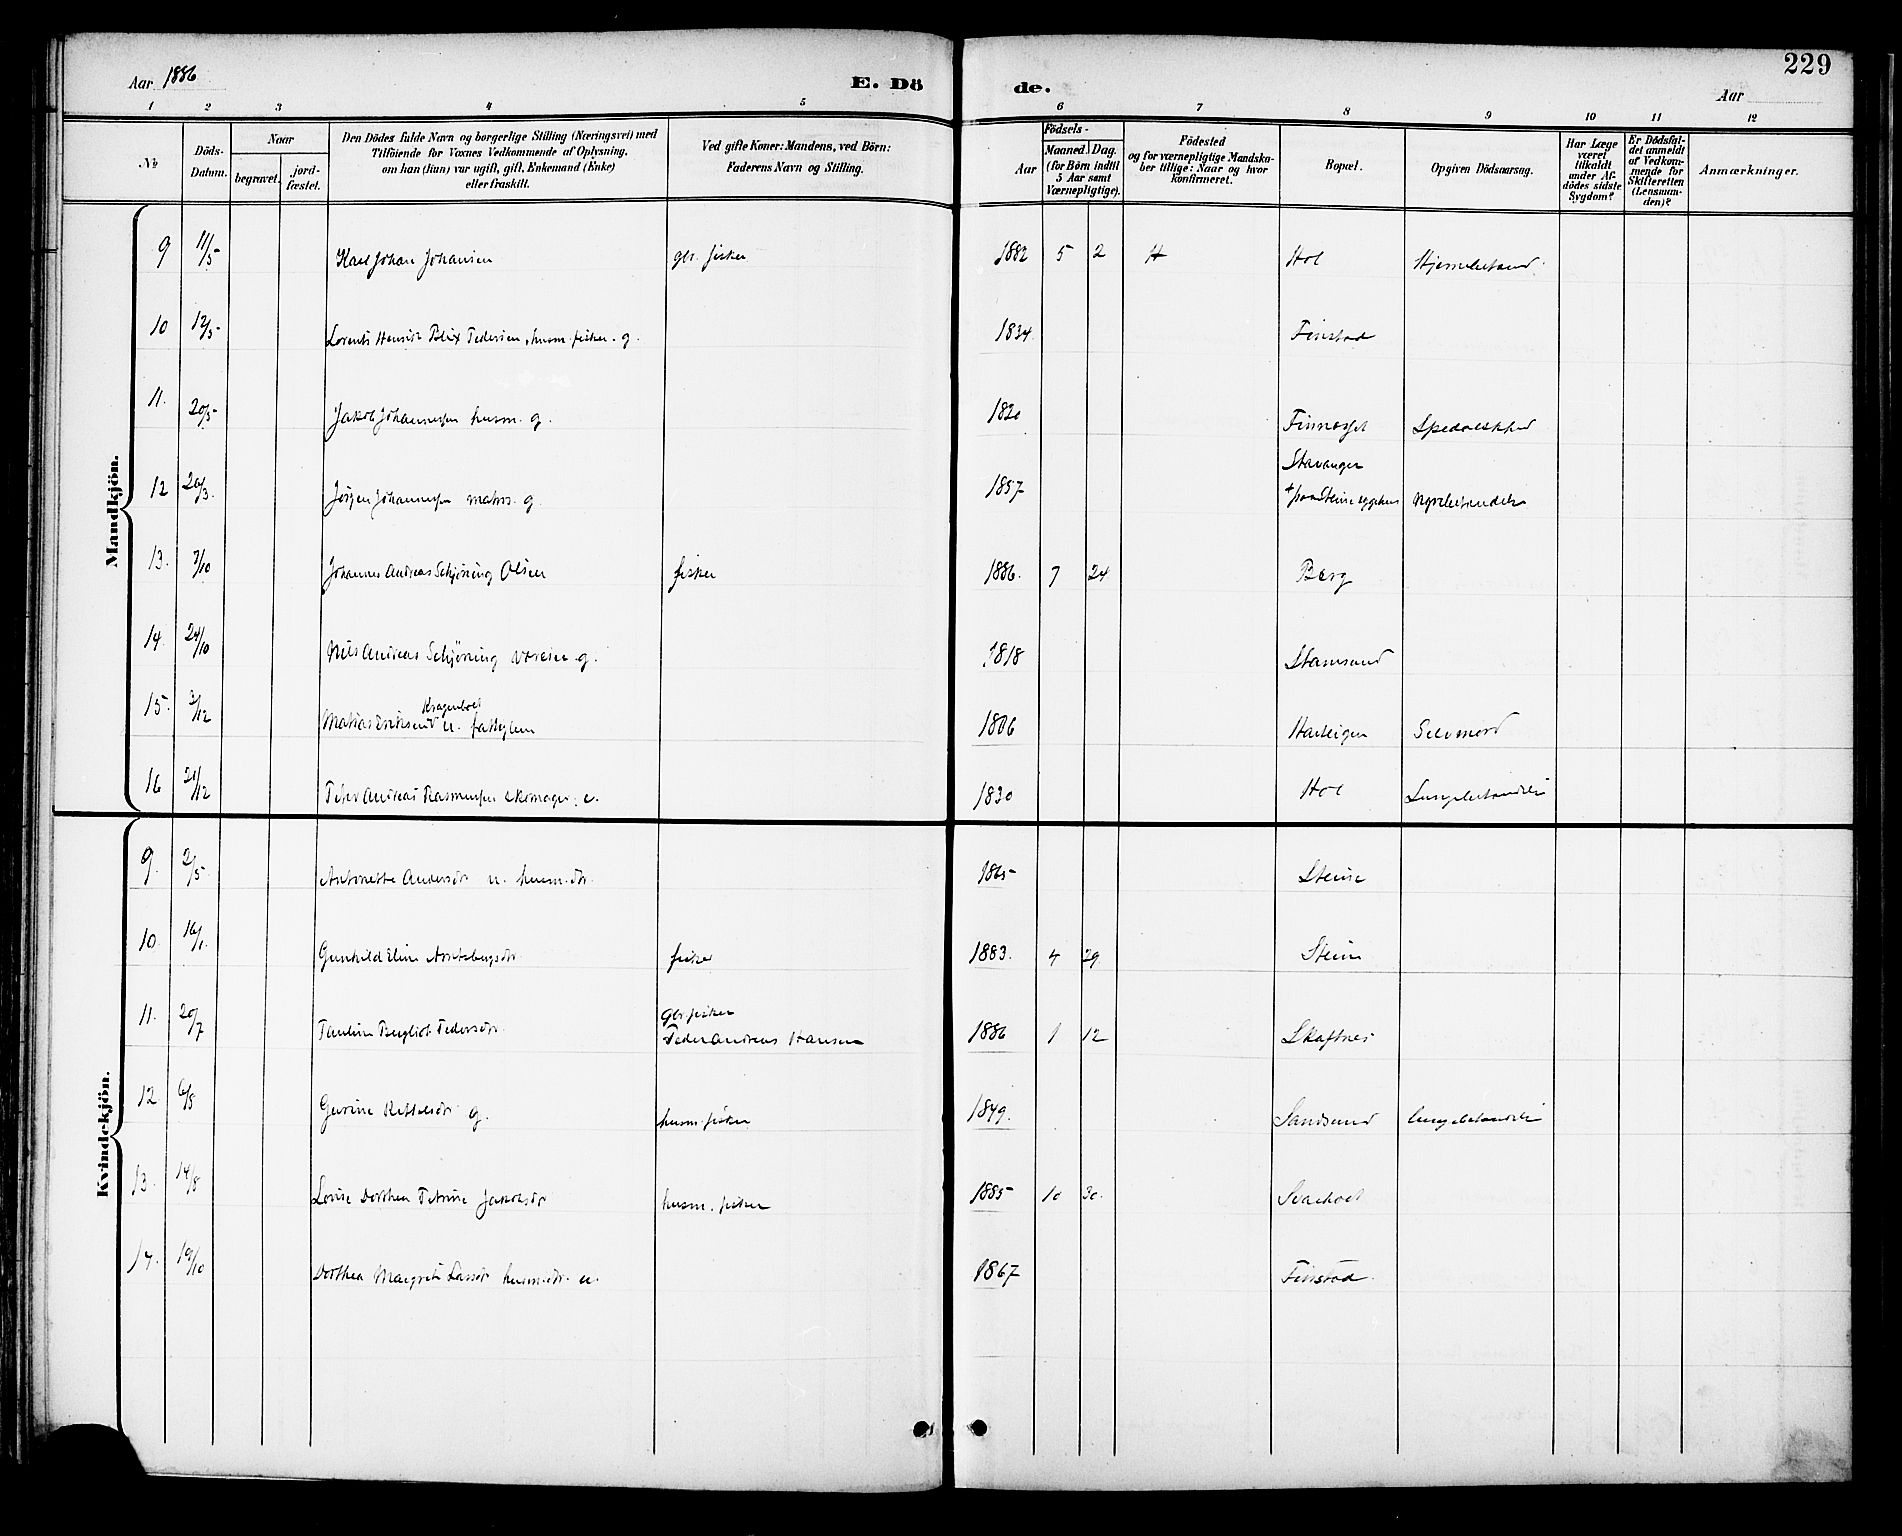 229
Aar 1886
E. Dö de.
Aar
1 2 3 4 5 6 7 8 9 10 11 12
No
Döds-Datum.
Naar
begravet.
jord-fæstet.
Den Dödes fulde Navn og borgerlige Stilling (Næringsvei) med
Tilföiende for Voxnes Vedkommende af Oplysning.
om han (hun) var ugift, gift, Enkemand (Enke)
eller fraskilt.
Ved gifte Koner: Mandens, ved Börn:
Faderens Navn og Stilling.
Födsels-
Aar
Maaned. Dag.
(for Börn indtil
5 Aar samt
Værnepligtige).
Födested
og for værnepligtige Mandska-
ber tillige: Naar og hvor
konfirmeret.
Bopæl.
Opgiven Dödsaarsag.
Har Læge
været
tilkaldt
under Af-
dödes sidste
Sygdom?
Er Dödsfal-
det anmeldt
af Vedkom-
mende for
Skifteretten
(Lensman-
den)?
Anmærkninger.
Mandkjön.
9 11/5 Karl Johan Johansen gbr. fisker 1882 5 2 H Hol
10 12/5 Lorents Henrik Blix Pedersen, husm. fisker. g. 1834 Finstad
11. 20/5 Jakob Johannessen husm. g. 1820 Spedalskhed
12 20/3. Jørgen Johannessen matros. g. 1857 Stavanger
13. 7/10 Johannes Andreas Schjøning Olsen fisker 1886. 7 24 Berg
14. 24/10 Nils Andreas Schjøning g. 1818 Stamsund
15. 3/12 Matias Eriksen u. 1806 Selvmord
16 21/12 Peter Andreas Rasmussen skomager. e. 1830 Hol Lungebetændelse
Kvindekjön.
9. 2/5 Antonette Andersdr u. husm.dtr. 1865 Steine
10. 16/1. Gunhild Eline fisker 1883. 4 29 Steine
11. 20/7 Pauline Bergliot Pedersdtr. gbr. fisker
Peder Andreas Hansen 1886 1 12 Skaftnes
12. 6/8 Gurine g. husm. fisker 1849. Sandsund lungebetændelse
13. 14/8 Lovise Dorthea Petrine Jakobsdr husm. fisker 1885 10 30.
14. 19/10 Dorthea Margrete Larsdr husm.dr. u. 1867 Finstad.